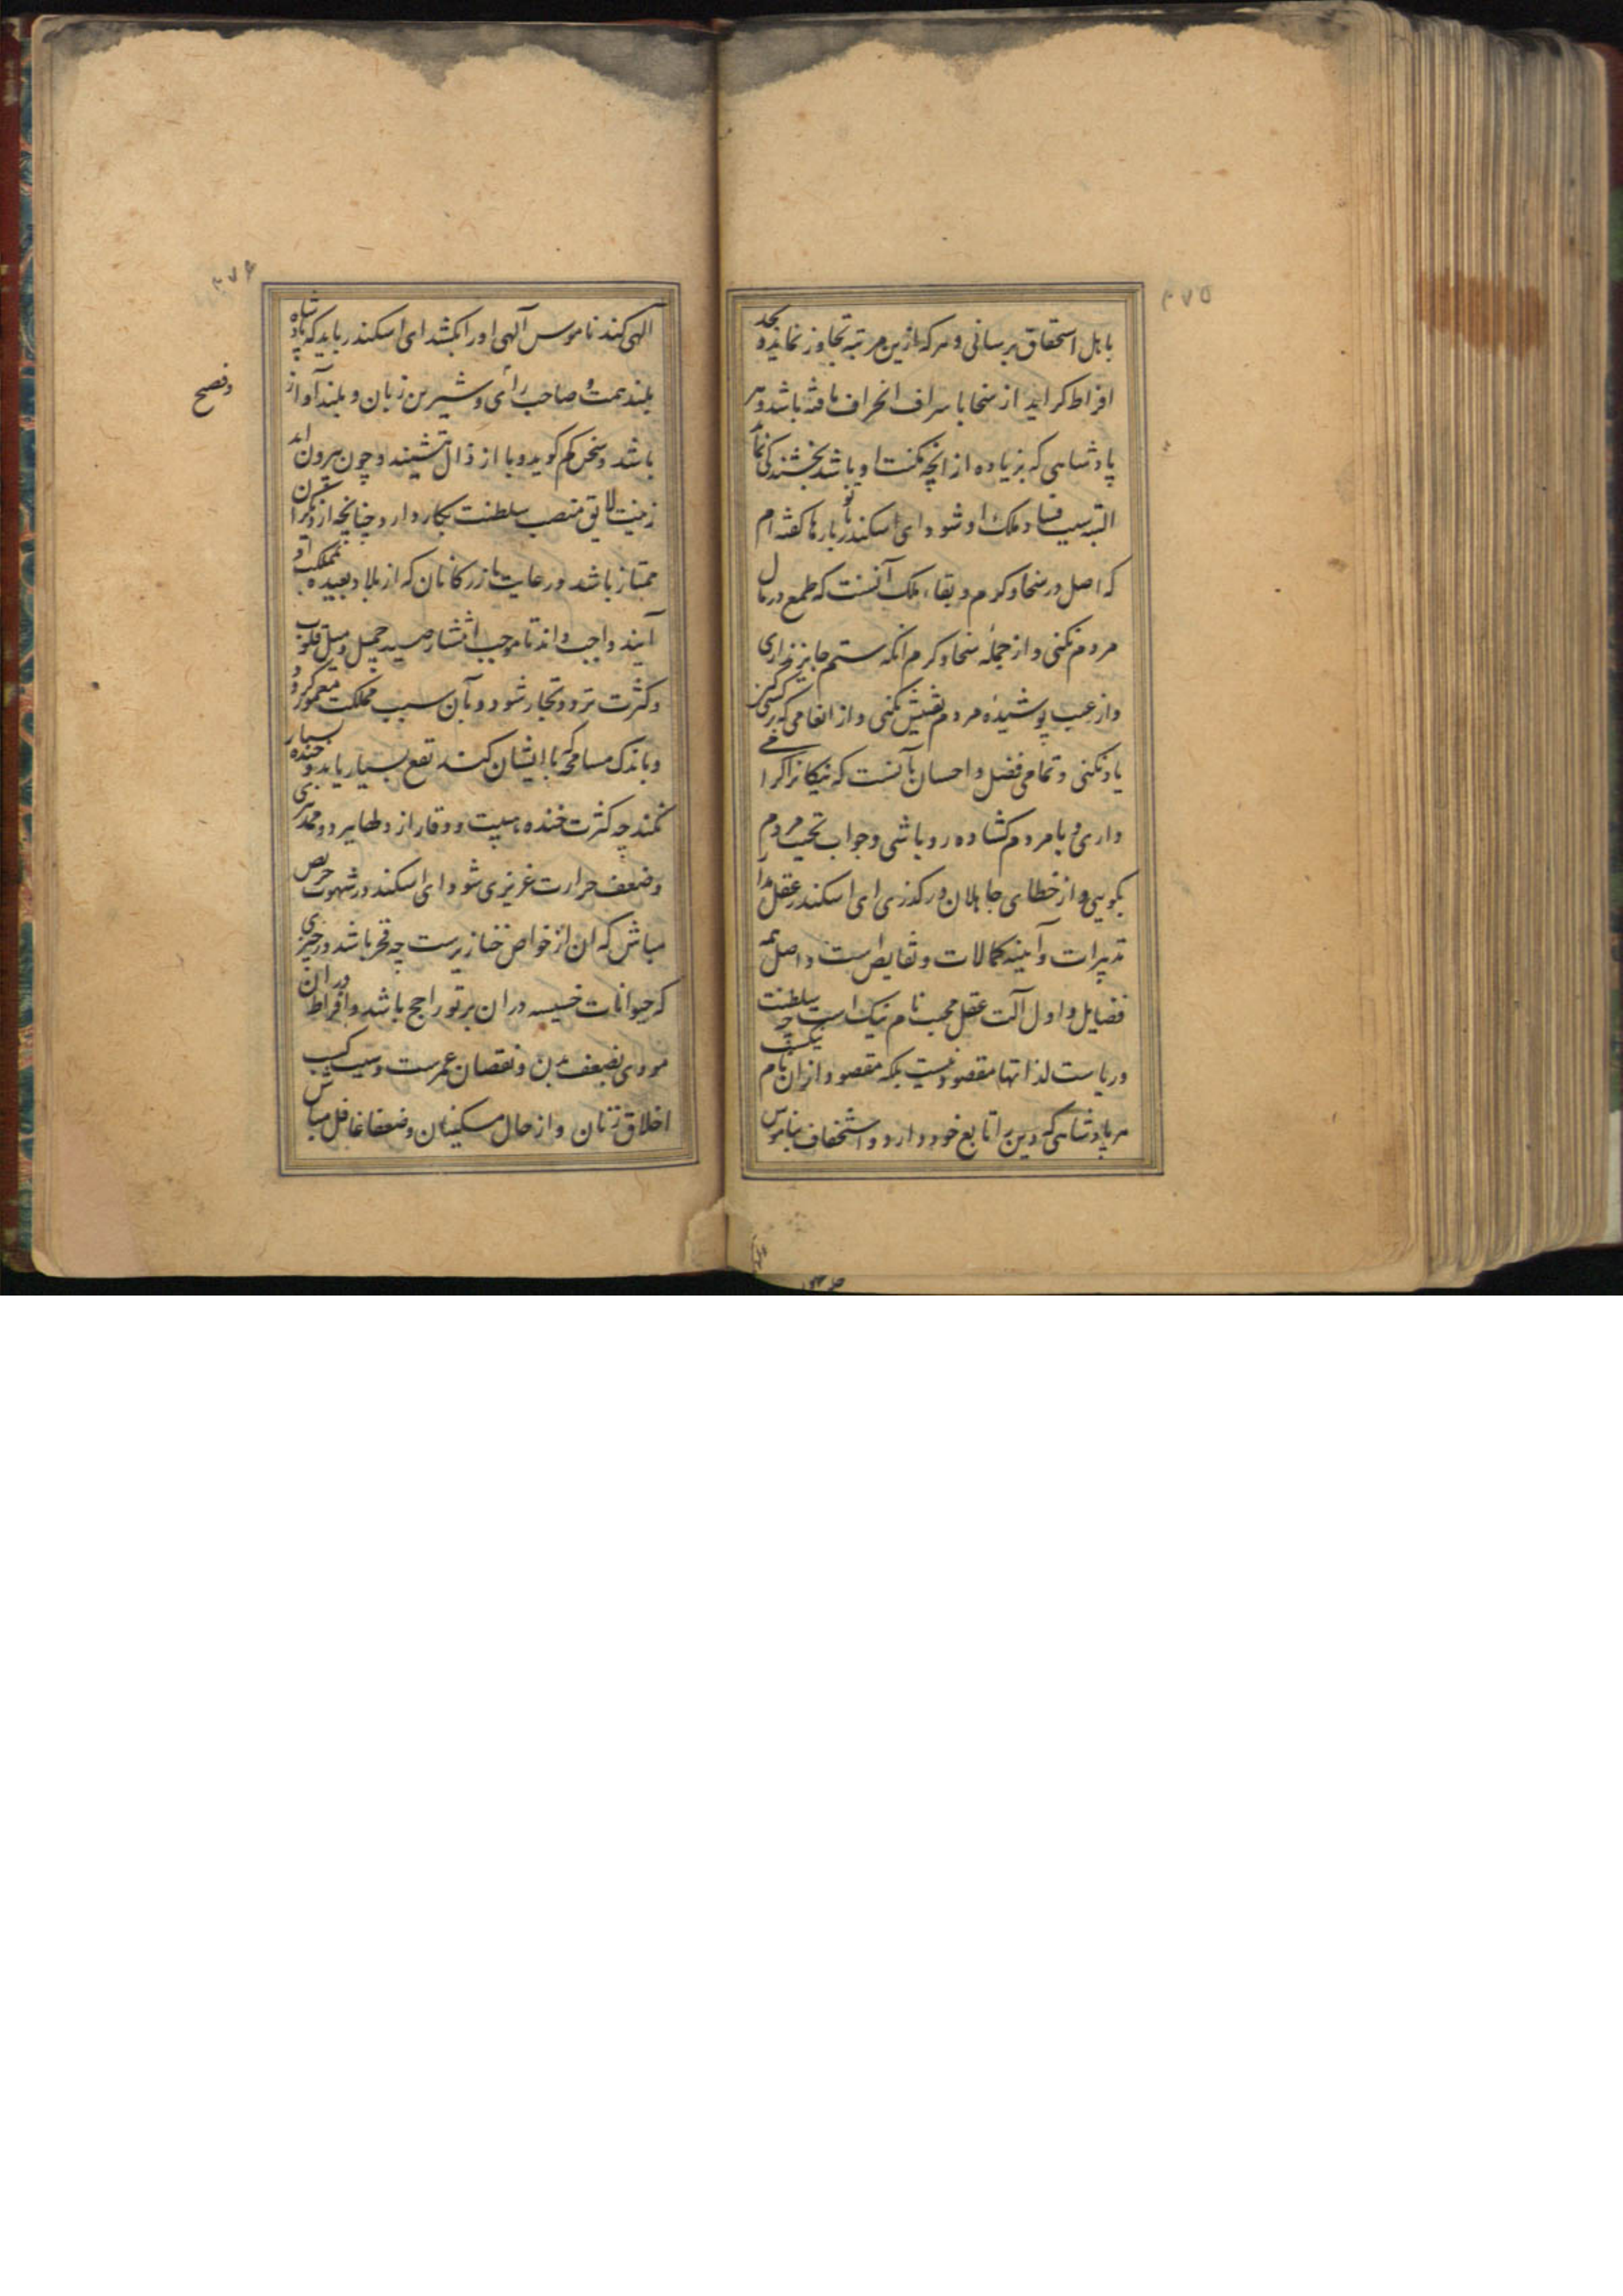 ۴۷۵
باهل استحقاق برسانی و هر که ازین مرتبه تجاوز نماید و بحد
افراط گراید از سخا باسراف انحراف یافته باشد و هر
پادشاهی که زیاده از انچه مکنت او باشد بخشندگی نماید
البته سبب فساد ملک او شود ای اسکندر بارها با تو گفته ام
که اصل در سخا و کرم و بقاء ملک آنست که طمع در مال
مردم نکنی و از جمله سخا و کرم انکه ستم جایز نداری
و از عیب پوشیده مردم تفتیش نکنی و از انعامی که بر کسی کنی
یاد نکنی و تمامی فضل و احسان بآنست که نیکانرا گرامی
داری و با مردم گشاده رو باشی و جواب تحیت مردم
بگویی و از خطای جاهلان درگذری ای اسکندر عقل مدار
تدبیرات و آیینه کمالات و نقایص است و اصل همه
فضایل و اول آلت عقل محبت نام نیک است چه سلطنت
و ریاست لذاتها مقصود نیست بلکه مقصود از ان نام نیکست
هر پادشاهی که دین را تابع خود دارد و استخفاف بناموس
۴۷۶
الهی کند ناموس آلهی او را بکشد ای اسکندر باید که پادشاه
بلند همت و صاحب رأی و شیرین زبان و بلند آواز
و فصیح
باشد و سخن کم گوید و با ارذال ننشیند و چون بیرون اید
زینت لایق منصب سلطنت بکار دارد چنانچه از دیگران
ممتاز باشد و رعایت بازرگانان که از بلاد بعیده بمملکت او
آیند واجب داند تا موجب انتشار صیت جمیل و میل قلوب
و کثرت تردد تجار شود و بآن سبب مملکت معمور گردد
و باندک مسامحه که با ایشان کند نفع بسیار یابد و خنده بسیار
نکند چه کثرت خنده هیبت و وقار از دلها ببرد
و ضعف حرارت غریزی شود ای اسکندر در شهوت حریص
مباش که ان از خواص خنازیرست چه فخر باشد در چیزی
که حیوانات خسیسه در ان بر تو راجح باشد و افراط در ان
مودی بضعف بدن و نقصان عمرست و سبب کسب
اخلاق زنان و از حال مسکینان و ضعفا غافل مباش